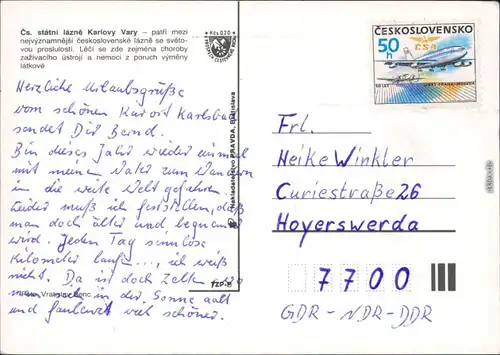 Čs. státní lázně Karlovy Vary – patří mezi
nejvýznamnější československé lázně se světo-
vou proslulostí. Léčí se zde zejména choroby
zažívacího ústrojí a nemoci z poruch výměny
látkové
Kčs 0,20
Herzliche Urlaubsgrüße
vom schönen Kurort Karlsbad
sendet Dir Bernd.
Bin dieses Jahr wieder einmal
mit meinem Vater zum Wandern
in die weite Welt gefahren.
Leider muß ich feststellen, daß
man doch älter und bequemer
wird. Jeden Tag sinnlose
Kilometer laufen..., ich weiß
nicht. Da ist doch Zelten wo
man sich in der Sonne aalt
und faulenzt viel schöner.
Nakladatelstvo PRAVDA, Bratislava
ČESKOSLOVENSKO
50 h
ČSA
50 LET
Frl.
Heike Winkler
Curiestraße 26
Hoyerswerda
7700
GDR - NDR - DDR